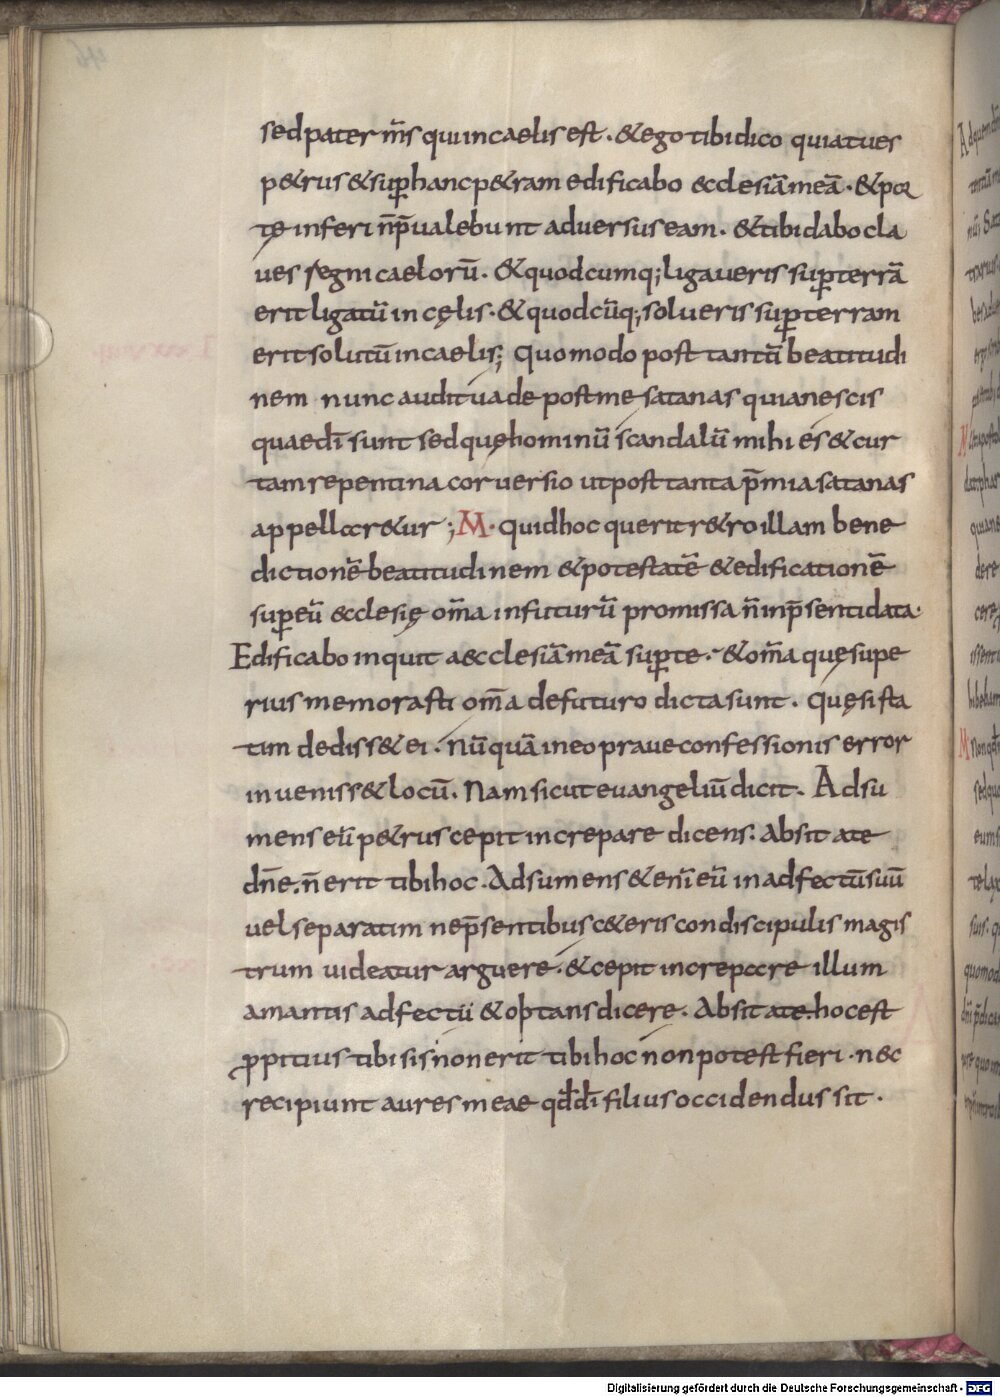 sed pater m̄s qui in caelis est · & ego tibi dico quia tu es
p&rus & sup̱ hanc p&ram edificabo ecclesiā meā · & por
tę inferi n̄ p̄ualebunt aduersus eam · & tibi dabo cla
ues regni caelorū · & quodcumq; ligaueris sup̱ terrā
erit ligatū in cęlis · & quodcūq; solueris sup̱ terram
erit solutū in caelis; quomodo post tantā beatitudi
nem nunc audit uade post me satanas quia nescis
quae dī sunt sed quę hominū scandalū mihi es & cur
tam repentina conuersio ut post tanta p̄mia satanas
appellar&ur ; M · quid hoc querit r&ro illam bene
dictionē beatitudinem & potestatē & edificationē
sup̱ eū ecclesię om̄a in futurū promissa n̄ in p̄senti data ·
Edificabo inquit aecclesiā meā sup̱ te · & om̄a quę supe
rius memorasti om̄a de futuro dicta sunt · quę si sta
tim dediss& ei · nūquā in eo praue confessionis error
inueniss& locū · Nam sicut euangeliū dicit · Adsu
mens eū p&rus cepit increpare dicens · absit a te
dn̄e · n̄ erit tibi hoc · Adsumens & enī eū in adfectū suū
uel separatim ne p̄sentibus c&eris condiscipulis magis
trum uideatur arguere · & cepit increpare illum
amantis adfectū & optans dicere · absit a te · hoc est
ꝓpitius tibi sis non erit tibi hoc non potest fieri · nec
recipiunt aures meae qđ dī filius occidendus sit ·
Digitalisierung gefördert durch die Deutsche Forschungsgemeinschaft - DFG